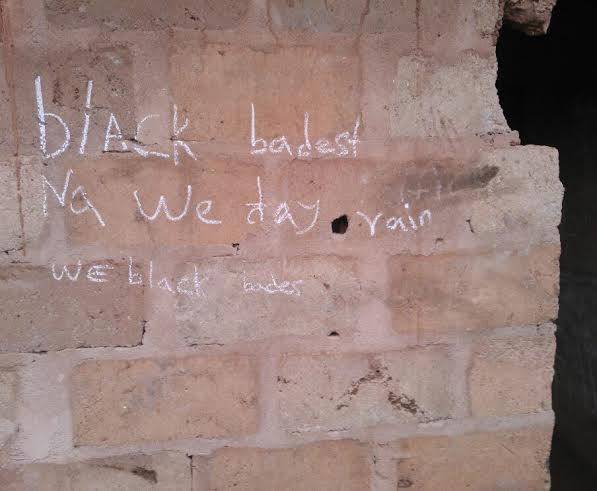 blACK badest
Na We day rain
WE black bades